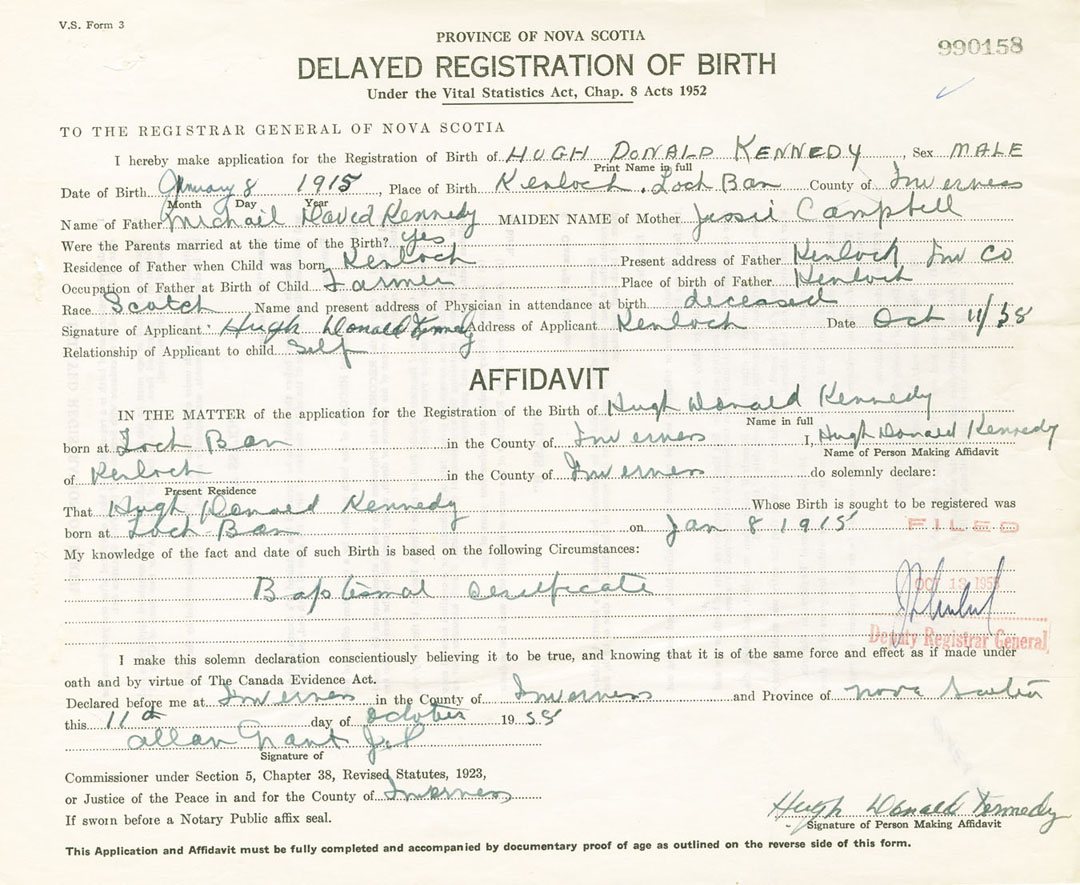 V.S. Form 3
990158
PROVINCE OF NOVA SCOTIA
DELAYED REGISTRATION OF BIRTH
Under the Vital Statistics Act, Chap. 8 Acts 1952
TO THE REGISTRAR GENERAL OF NOVA SCOTIA
I hereby make application for the Registration of Birth of HUGH DONALD KENNEDY, Sex MALE
Print Name in full
Date of Birth January 8 1915, Place of Birth Kenloch. Loch Ban County of Inverness
Month Day Year
Name of Father Michail David Kennedy MAIDEN NAME of Mother Jessie Campbell
Were the Parents married at the time of the Birth? Yes
Residence of Father when Child was born Kenloch Present address of Father Kenloch Inv Co
Occupation of Father at Birth of Child Farmer Place of birth of Father Kenloch
Race Scotch Name and present address of Physician in attendance at birth deceased
Signature of Applicant Hugh Donald Kennedy Address of Applicant Kenloch Date Oct 11/55
Relationship of Applicant to child Self
AFFIDAVIT
IN THE MATTER of the application for the Registration of the Birth of Hugh Donald Kennedy
Name in full
born at Loch Ban in the County of Inverness I, Hugh Donald Kennedy
Name of Person Making Affidavit
of Kenloch in the County of Inverness do solemnly declare:
Present Residence
That Hugh Donald Kennedy Whose Birth is sought to be registered was
born at Loch Ban on Jan 8 1915
FILED
My knowledge of the fact and date of such Birth is based on the following Circumstances:
Baptismal certificate
OCT 12 195
Deputy Registrar General
I make this solemn declaration conscientiously believing it to be true, and knowing that it is of the same force and effect as if made under
oath and by virtue of The Canada Evidence Act.
Declared before me at Inverness in the County of Inverness and Province of Nova Scotia
this 11th day of October 1955
Allan Grant J.P
Signature of
Commissioner under Section 5, Chapter 38, Revised Statutes, 1923,
or Justice of the Peace in and for the County of Inverness
If sworn before a Notary Public affix seal.
Hugh Donald Kennedy
Signature of Person Making Affidavit
This Application and Affidavit must be fully completed and accompanied by documentary proof of age as outlined on the reverse side of this form.